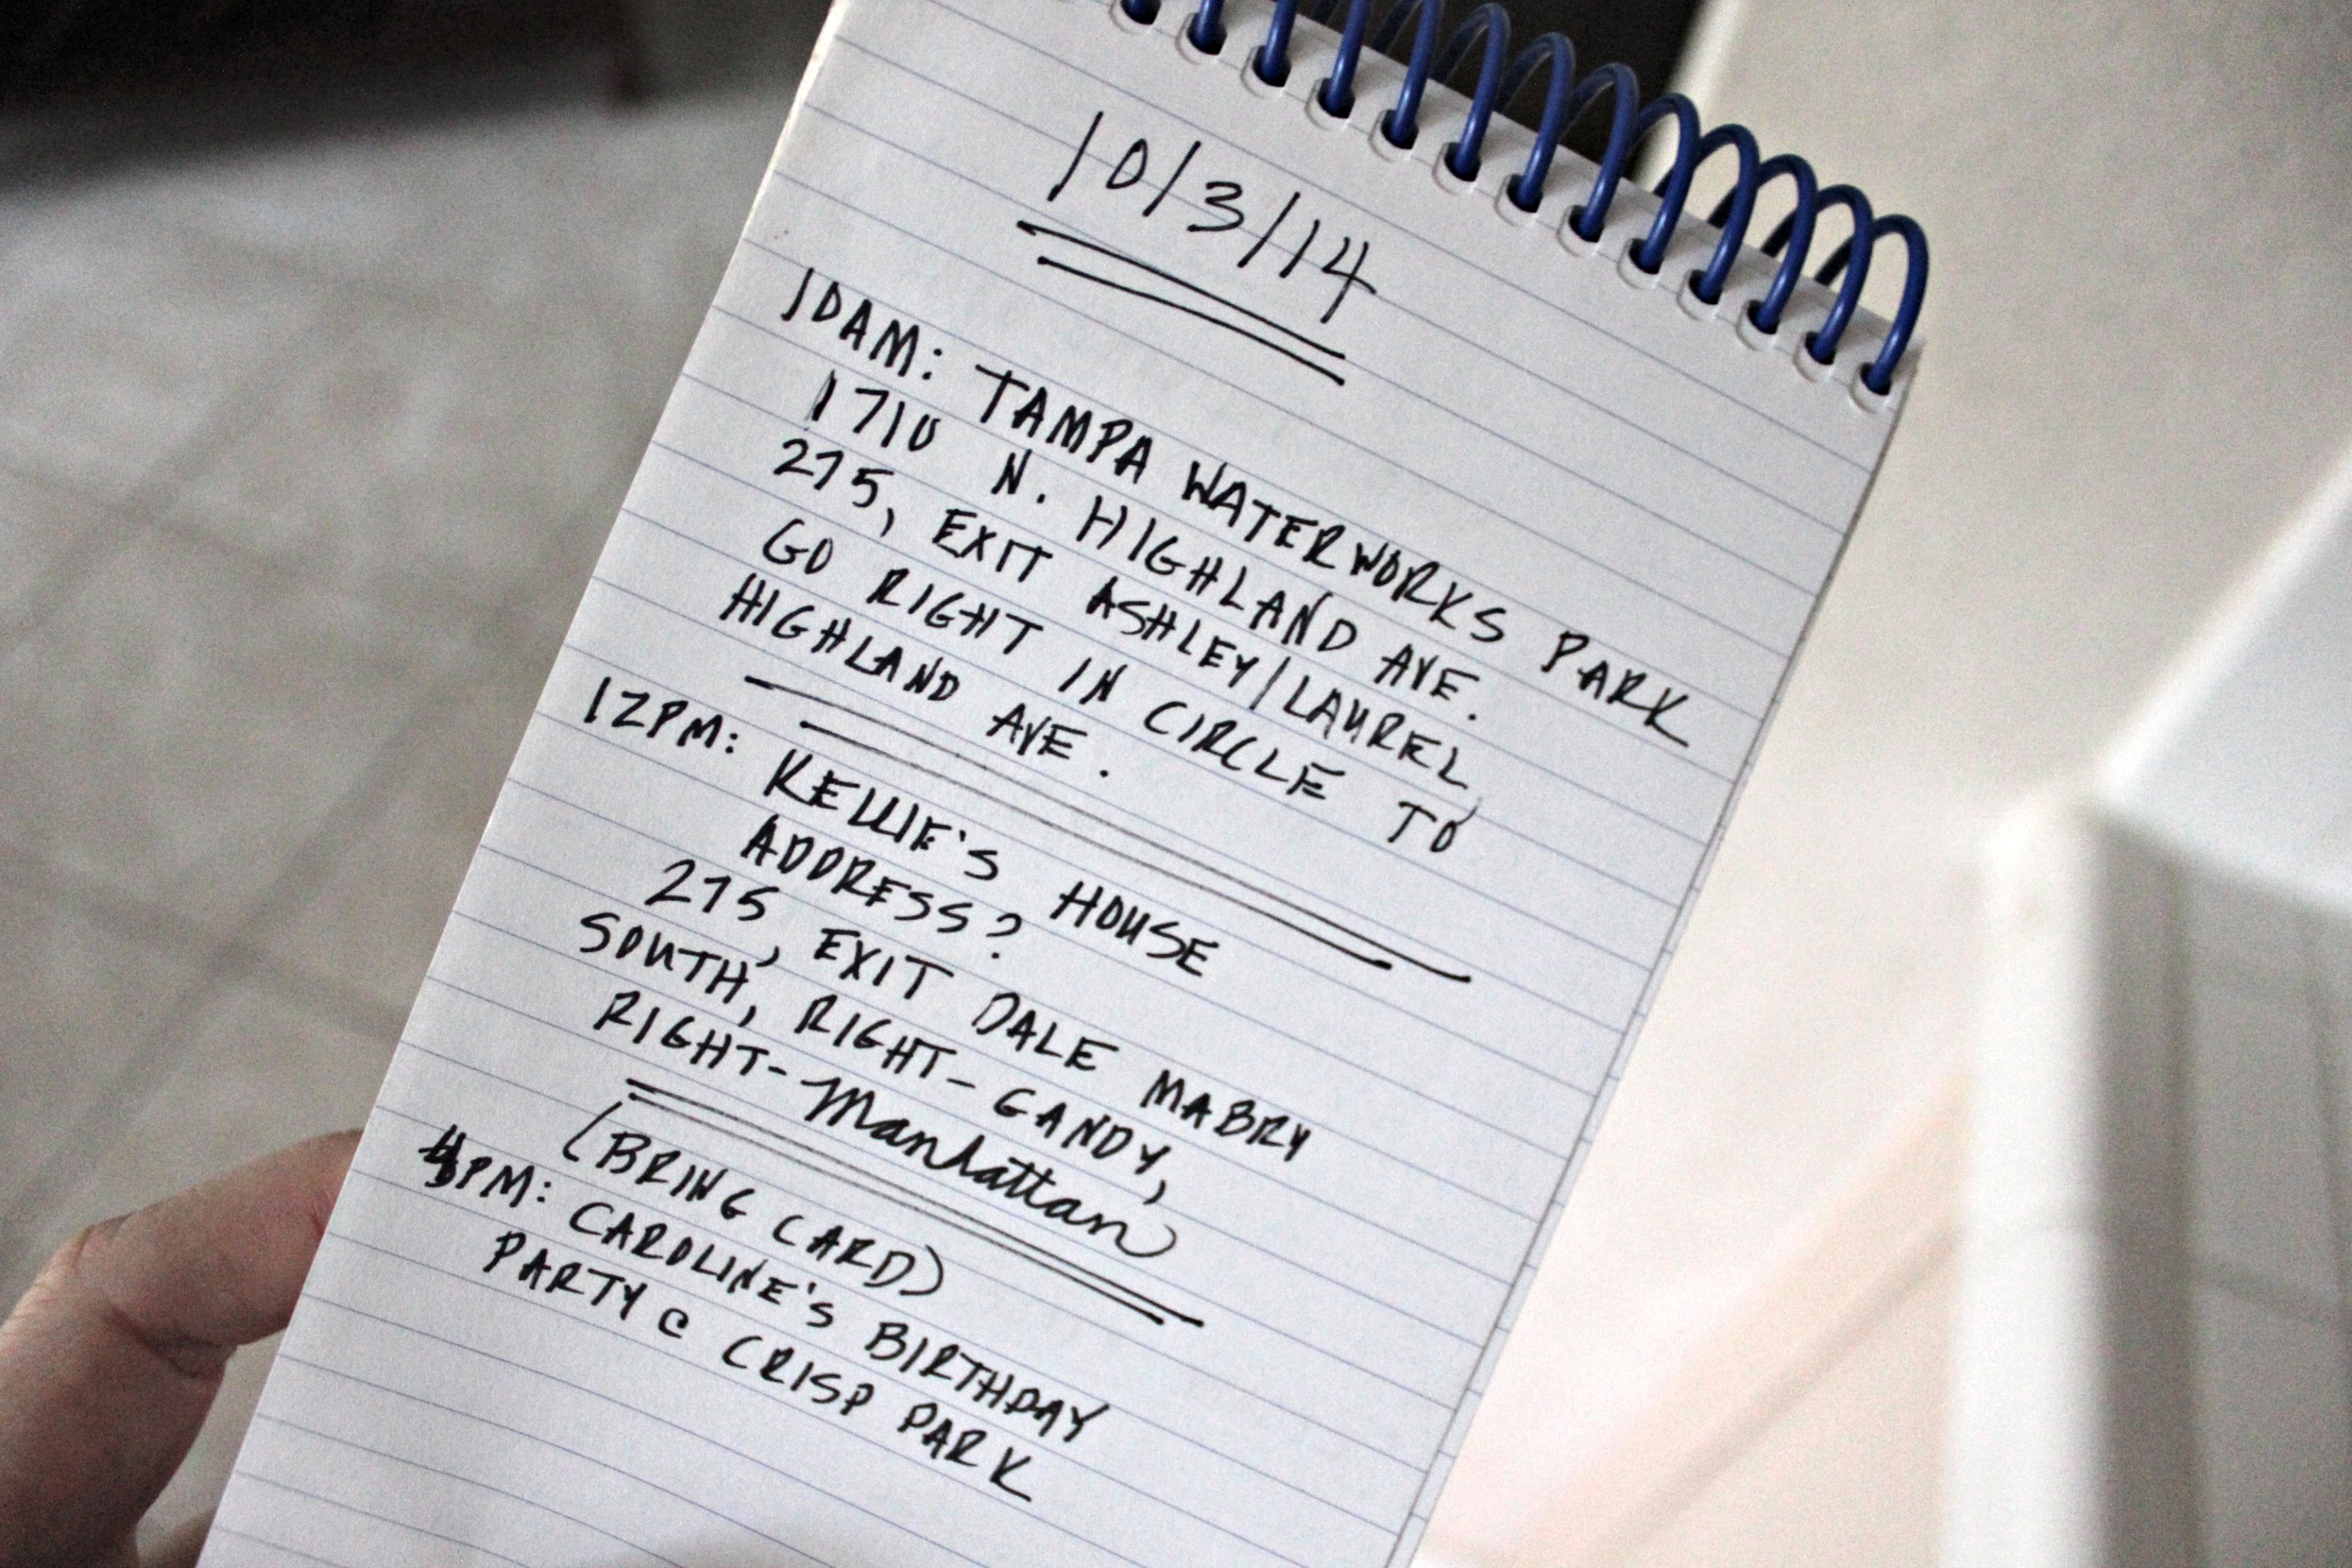 10/3/14
10AM: TAMPA WATERWORKS PARK
1710 N. HIGHLAND AVE.
275, EXIT ASHLEY/LAUREL,
GO RIGHT IN CIRCLE TO
HIGHLAND AVE.
12PM: KELLIE'S HOUSE
ADDRESS?
275, EXIT DALE MABRY
SOUTH, RIGHT-GANDY,
RIGHT-Manhattan
(BRING CARD)
PM: CAROLINE'S BIRTHDAY
PARTY @ CRISP PARK